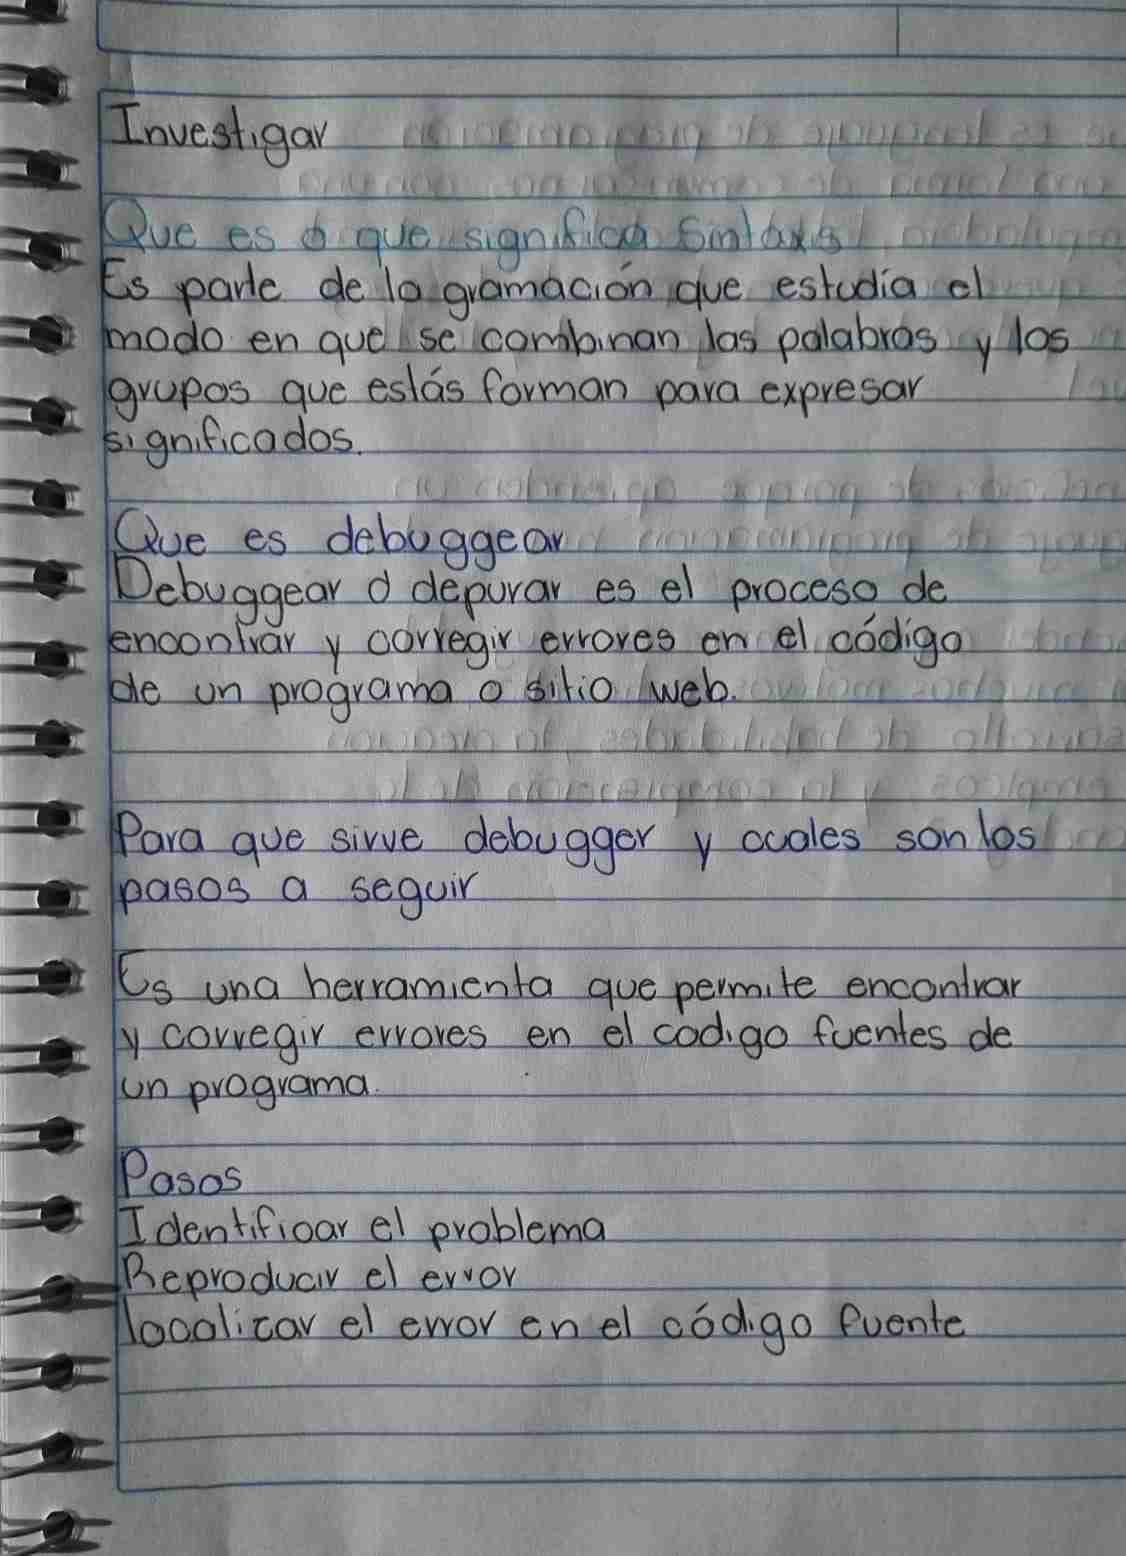 Investigar
Que es o que significa Sintaxis
Es parte de la gramación que estudia el
modo en que se combinan las palabras y los
grupos que estás forman para expresar
significados.
Que es debuggear
Debuggear o depurar es el proceso de
encontrar y corregir errores en el código
de un programa o sitio web.
Para que sirve debugger y cuales son los
pasos a seguir
Es una herramienta que permite encontrar
y corregir errores en el codigo fuentes de
un programa.
Pasos
Identificar el problema
Reproducir el error
localizar el error en el código fuente